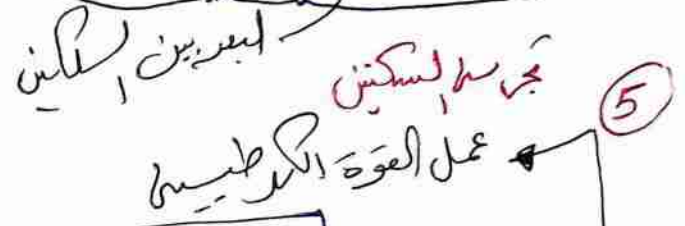 البعد بين السكتين
5 تجربة السكتين
عمل القوة الكهرطيسية